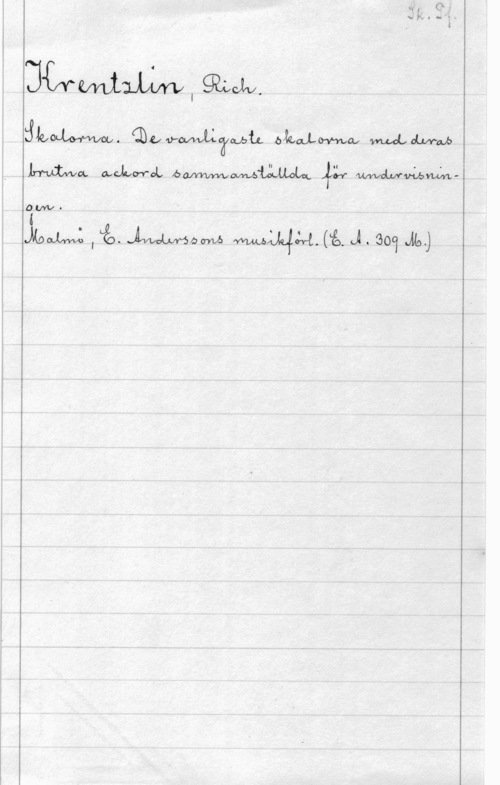 Sk. Pf.
Krentzlin, Rich.
Skalorna. De vanligaste skalorna med deras
brutna ackord sammanställda för undervisnin-
gen.
Malmö, E. Anderssons musikförl. (E. A. 309 M.)